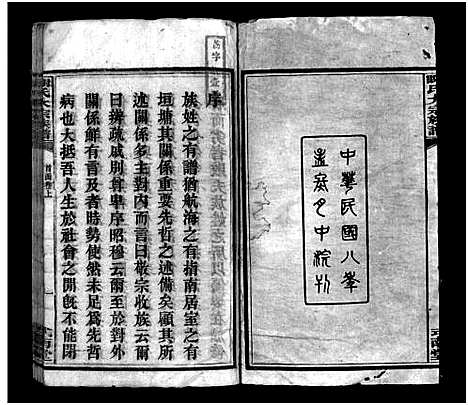 中華民國八年
孟冬之中浣刊
序
族姓之有譜猶航海之有指南居室之有
垣墉其關係重要先哲之述備矣顧其所
述關係多主對內而言曰敬宗收族云爾
曰辨疏戚別尊卑序昭穆云爾至於對外
關係鮮有言者時勢使然未足爲先哲
病也大抵吾人生於社會之開旣不能閉
氏大宗族譜
首函卷上